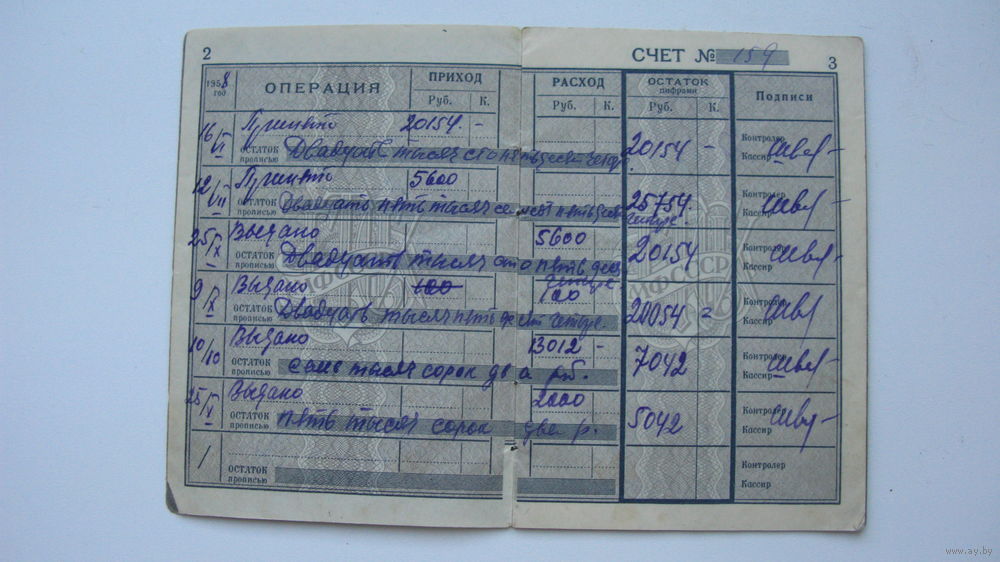 2
СЧЕТ № 159
3
1958 год ОПЕРАЦИЯ ПРИХОД РАСХОД ОСТАТОК цифрами Подписи
Руб. К. Руб. К. Руб. К.
16/VI Принято 20154. - 20154 - Контролер
ОСТАТОК прописью Двадцать тысяч сто пятьдесят четыре Кассир
12/VII Принято 5600 25754. Контролер
ОСТАТОК прописью Двадцать пять тысяч семьсот пятьдесят четыре. Кассир
25/IX Выдано 5600 20154 Контролер
ОСТАТОК прописью Двадцать тысяч сто пять десят четыре. Кассир
9/X Выдано 100 100 20054 = Контролер
ОСТАТОК прописью Двадцать тысяч пятьдесят четыре. Кассир
10/10 Выдано 13012 - 7042 Контролер
ОСТАТОК прописью семь тысяч сорок два рб. Кассир
25/X Выдано 2000 5042 Контролер
ОСТАТОК прописью пять тысяч сорок два р. Кассир
/ Контролер
ОСТАТОК прописью Кассир
МФ СССР
www.ay.by